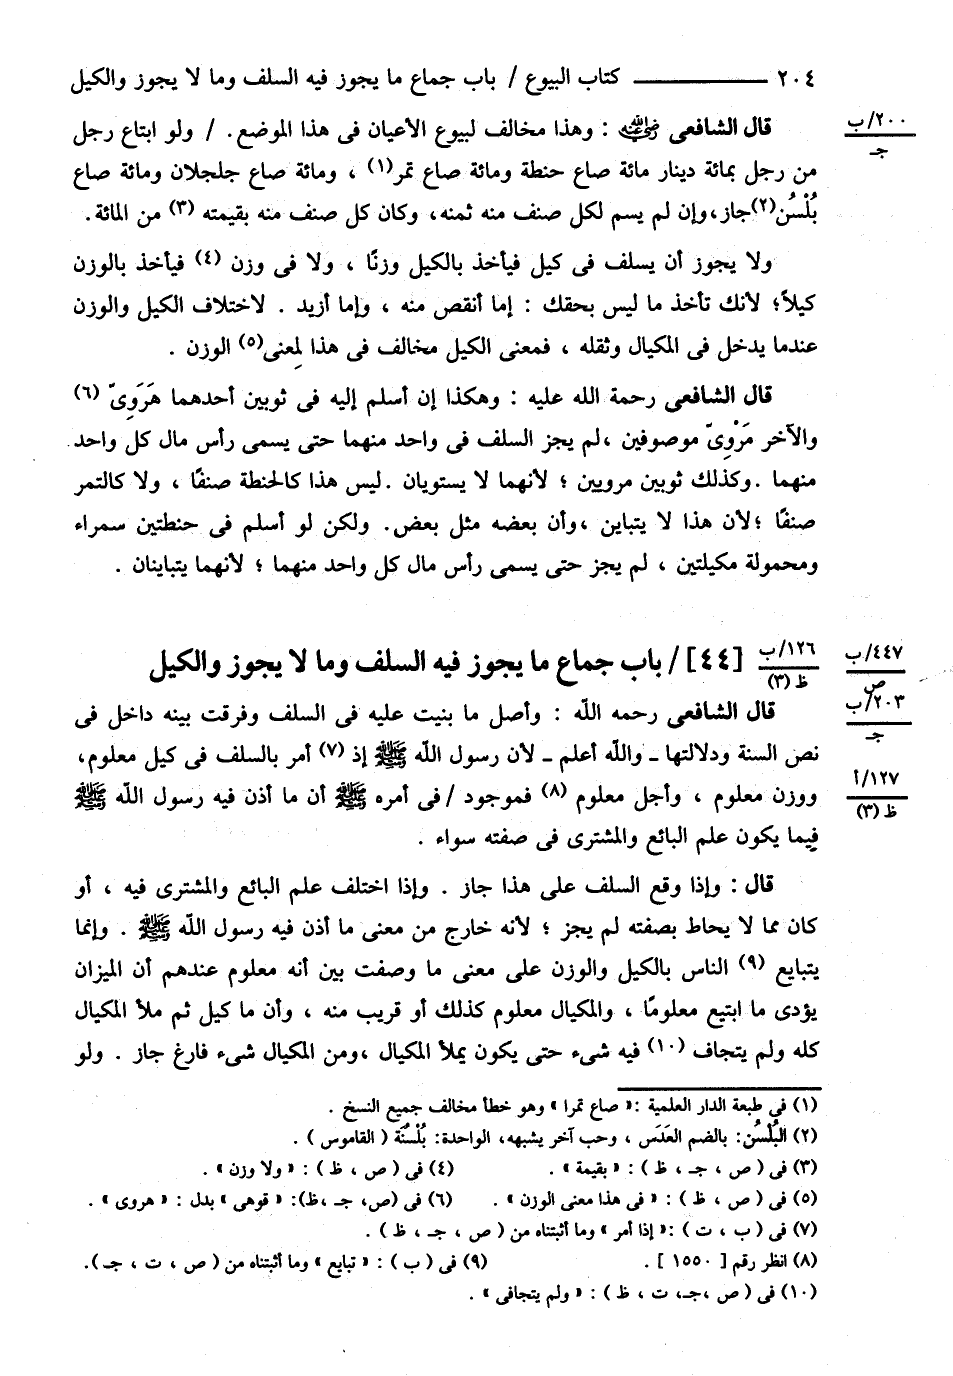 ٢٠٤ ـــــــــــــــ كتاب البيوع / باب جماع ما يجوز فيه السلف وما لا يجوز والكيل
٢٠٠/ب
جـ
قال الشافعى رضي الله عنه : وهذا مخالف لبيوع الأعيان فى هذا الموضع . / ولو ابتاع رجل
من رجل بمائة دينار مائة صاع حنطة ومائة صاع تمر (١) ، ومائة صاع جلجلان ومائة صاع
بُلْسُن(٢)جاز،وإن لم يسم لكل صنف منه ثمنه، وكان كل صنف منه بقيمته (٣) من المائة.
ولا يجوز أن يسلف فى كيل فيأخذ بالكيل وزنًا ، ولا فى وزن (٤) فيأخذ بالوزن
كيلاً؛ لأنك تأخذ ما ليس بحقك : إما أنقص منه ، وإما أزيد . لاختلاف الكيل والوزن
عندما يدخل فى المكيال وثقله ، فمعنى الكيل مخالف فى هذا لِمعنى(٥) الوزن .
قال الشافعى رحمة الله عليه : وهكذا إن أسلم إليه فى ثوبين أحدهما هَرَوِىّ (٦)
والآخر مَرْوِىّ موصوفين ،لم يجز السلف فى واحد منهما حتى يسمى رأس مال كل واحد
منهما .وكذلك ثوبين مرويين ؛ لأنهما لا يستويان .ليس هذا كالحنطة صنفًا ، ولا كالتمر
صنفًا ؛لأن هذا لا يتباين ،وأن بعضه مثل بعض. ولكن لو أسلم فى حنطتين سمراء
ومحمولة مكيلتين ، لم يجز حتى يسمى رأس مال كل واحد منهما ؛ لأنهما يتباينان .
٤٤٧/ب
ص
١٢٦/ب
ظ (٣)
[٤٤] / باب جماع ما يجوز فيه السلف وما لا يجوز والكيل
٢٠٣/ب
جـ
قال الشافعى رحمه الله : وأصل ما بنيت عليه فى السلف وفرقت بينه داخل فى
نص السنة ودلالتها ـ والله أعلم ـ لأن رسول الله ﷺ إذ (٧) أمر بالسلف فى كيل معلوم،
١٢٧/أ
ظ (٣)
ووزن معلوم ، وأجل معلوم (٨) فموجود / فى أمره ﷺ أن ما أذن فيه رسول الله ﷺ
فيما يكون علم البائع والمشترى فى صفته سواء .
قال : وإذا وقع السلف على هذا جاز . وإذا اختلف علم البائع والمشترى فيه ، أو
كان مما لا يحاط بصفته لم يجز ؛ لأنه خارج من معنى ما أذن فيه رسول الله ﷺ . وإنما
يتبايع (٩) الناس بالكيل والوزن على معنى ما وصفت بين أنه معلوم عندهم أن الميزان
يؤدى ما ابتيع معلومًا ، والمكيال معلوم كذلك أو قريب منه ، وأن ما كيل ثم ملأ المكيال
كله ولم يتجاف (١٠) فيه شىء حتى يكون يملأ المكيال ،ومن المكيال شىء فارغ جاز . ولو
(١) فى طبعة الدار العلمية :« صاع تمرا » وهو خطأ مخالف جميع النسخ .
(٢) البُلْسُن: بالضم العَدَس ، وحب آخر يشبهه، الواحدة: بُلْسُنَة ( القاموس ) .
(٣) فى ( ص ، جـ ، ظ ) : « بقيمة » . (٤) فى ( ص ، ظ ) : « ولا وزن » .
(٥) فى ( ص ، ظ ) : « فى هذا معنى الوزن » . (٦) فى (ص، جـ ،ظ): « قوهى » بدل : « هروى » .
(٧) فى ( ب ، ت ) :« إذا أمر » وما أثبتناه من ( ص ، جـ ، ظ ) .
(٨) انظر رقم [ ١٥٥٠ ] . (٩) فى ( ب ) : « تبايع » وما أثبتناه من ( ص ، ت ، جـ ).
(١٠) فى ( ص ،جـ، ت ، ظ ) : « ولم يتجافى » .